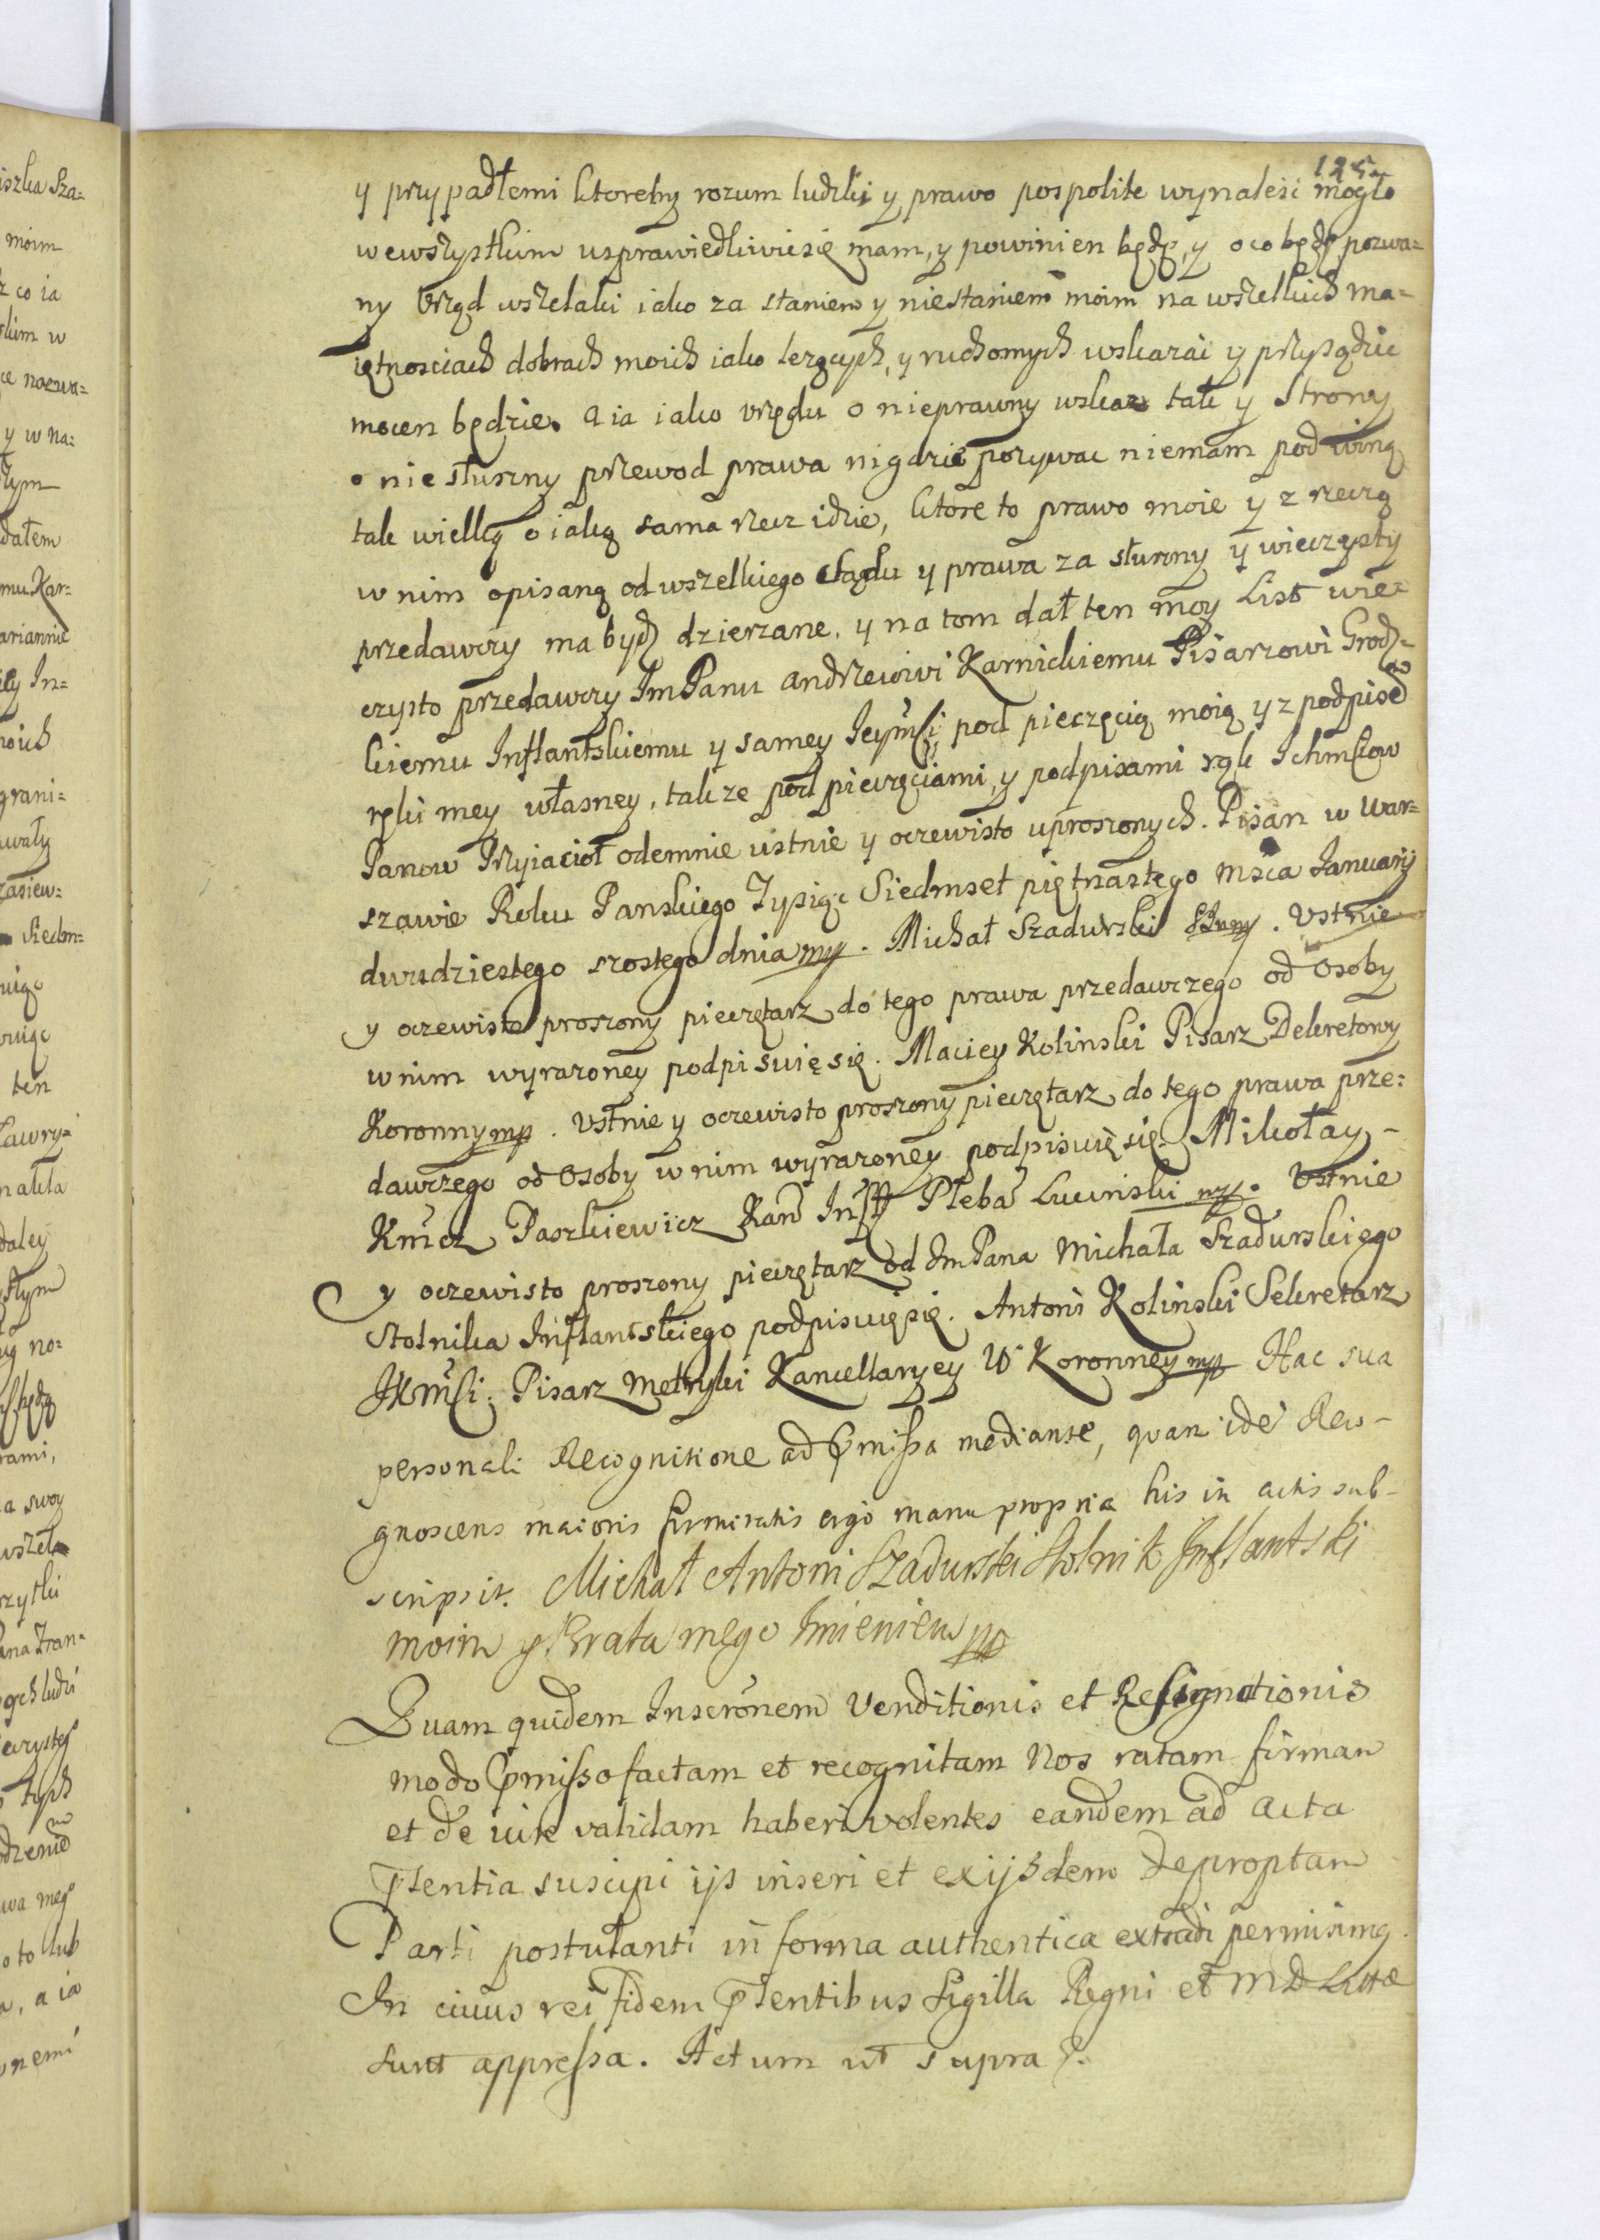 125
y przypadłemi ktoreby rozum ludzki y prawo pospolite wynaleść mogło
wewszystkim usprawiedliwić się mam, y powinien będę, y oco będę pozwa=
ny Vrząd wszelaki iako za staniem y niestaniem moim na wszelkich ma=
iętnosciach dobrach moich iako leżących, y ruchomych wskazać y przysądzić
mocen będzie. a ia iako vrzędu o nieprawny wskaz tak y Strony
o niesłuszny przewod prawa nigdzie pozywac niemam pod winą
tak wielką o iaką sama rzecz idzie, ktore to prawo moie y z rzeczą
w nim opisaną od wszelkiego sądu y prawa za słuszny y wieczysty
przedawczy ma bydź dzierzane. y na tom dał ten moy List wie=
czysto przedawczy ImPanu andrzeiowi Karnickiemu Pisarzowi Grodz=
kiemu Inflantskiemu y samey Ieymści pod pieczęcią moią y z podpisē
ręki mey własney, takze pod pieczęciami, y podpisami rąk Ichmściow
Panow Przyiacioł odemnie ustnie y oczewisto uproszonych. Pisan w War=
szawie Roku Panskiego Tysiąc Siedmset piętnastego msca Ianuarij
dwudziestego szostego dnia mp. Michał Szadurski SInmp. Vstnie
y oczewisto proszony pieczętarz do tego prawa przedawczego od Osoby
w nim wyrazoney podpisuię się. Maciey Kolinski Pisarz Dekretowy
Koronny mp. Vstnie y oczewisto proszony pieczętarz do tego prawa prze=
dawczego od Osoby w nim wyrazoney podpisuię się Mikołay
Paszkiewicz Kan Infl Pleba Lucinski mp. Vstnie
y oczewisto proszony pieczętarz od ImPana Michała Szadurskiego
Stolnika Inflantskiego podpisuię się. Antoni Kolinski Sekretarz
JKMści. Pisarz Metryki Kancellaryey W Koronney mp Hac sua
personali Recognitione ad pmissa mediante, quam idē Reco-
gnoscens maioris firmitatis ergo manu propria his in actis sub-
scripsit. Michał Antoni Szadurski Stolnik Inflantski
moim y Brata mego Imieniem mp
Quam quidem Inscrōnem Venditionis et Resignationis
modo pmisso factam et recognitam Nos ratam firmam
et de iure validam haberi volentes eandem ad acta
pntia suscipi ijs inseri et exijsdem depromptam
Parti postulanti in forma authentica extradi permisimq.
In cuius rei fidem pntibus Sigilla Regni et MD Litt͠æ
sunt appressa. Actum ut supra